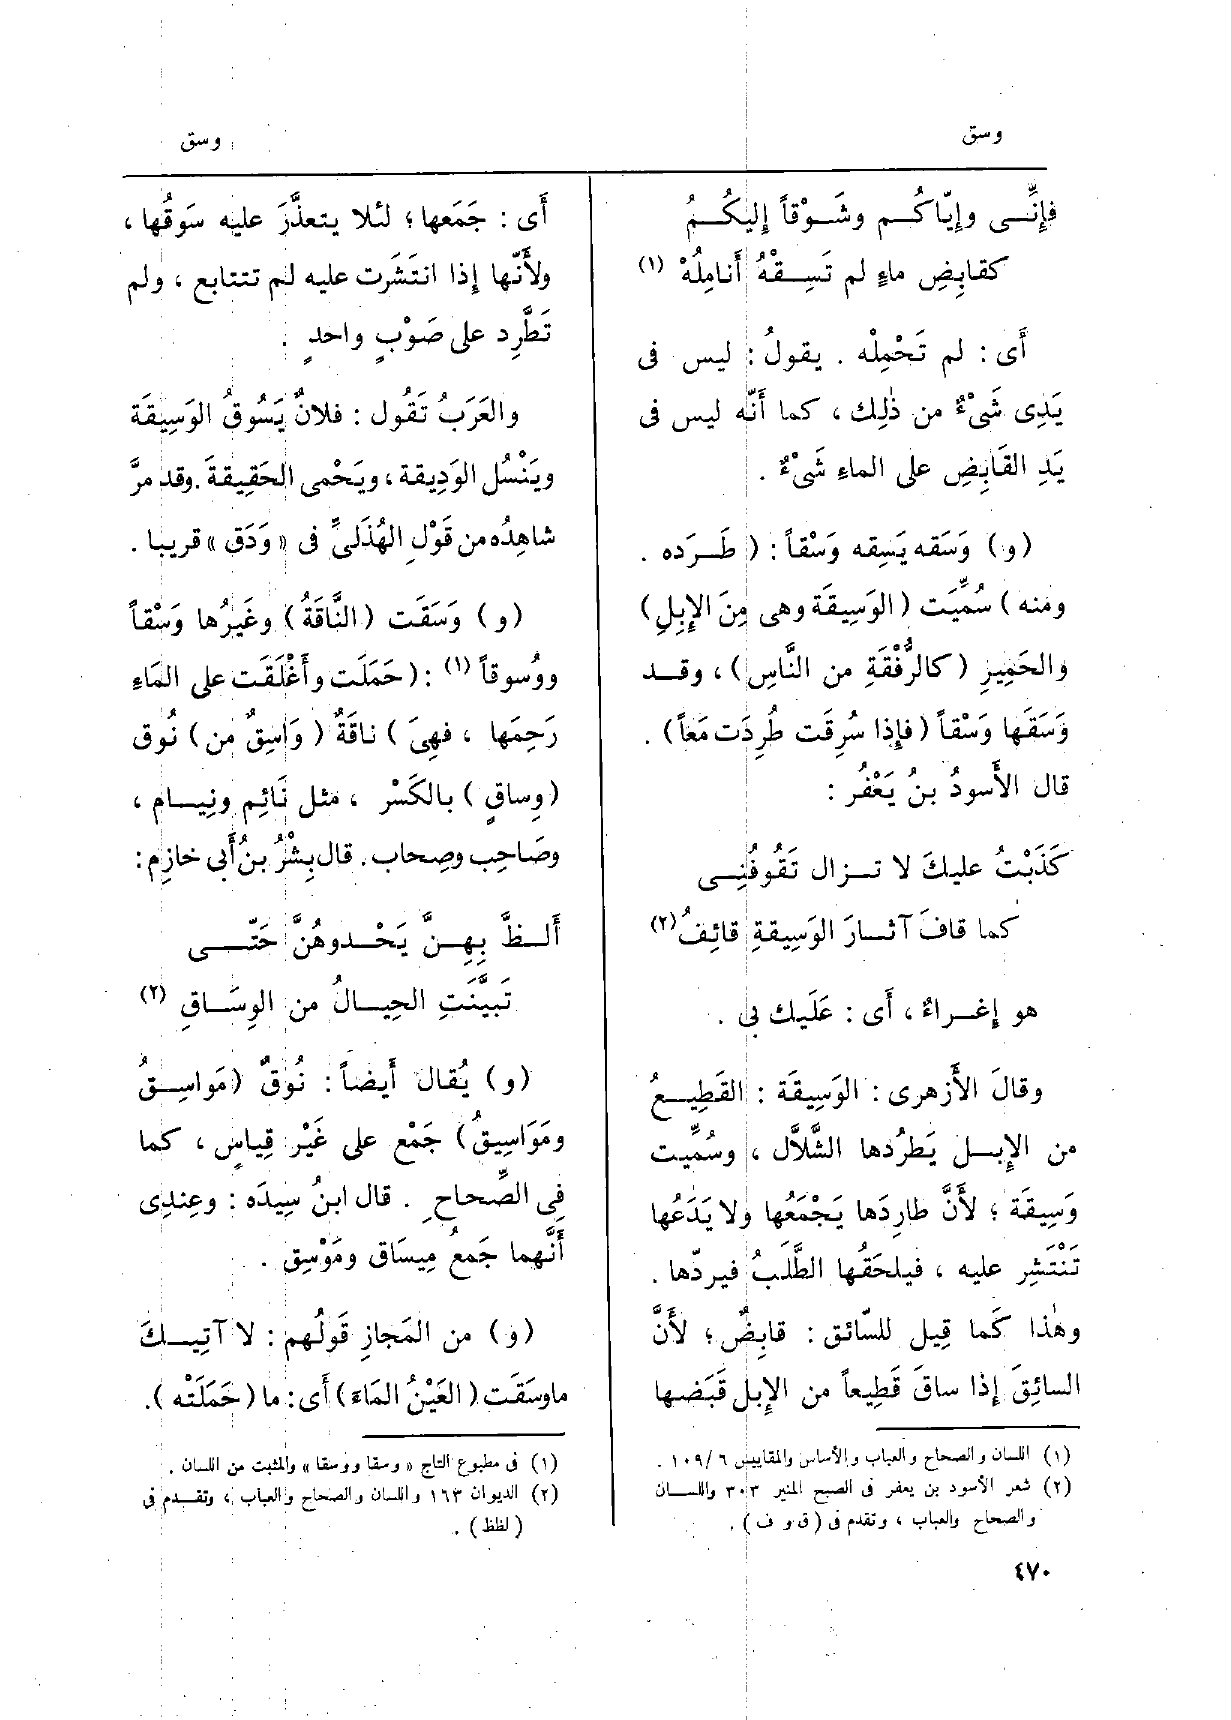 وسق
وسق
فإِنِّـى وإِيّاكُـم وشَـوْقاً إِليكُـمُ
كقابِضِ ماءٍ لم تَسِـقْهُ أَنامِلُهْ (١)
أَى : لم تَحْمِلْه . يقولُ : ليس فى
يَدِى شَىْءٌ من ذٰلِك ، كما أَنَّه ليس فى
يَدِ القَابِضِ على الماءِ شَىْءٌ .
(و) وَسَقه يَسِقه وَسْقاً : ( طَـرَده .
ومنه ) سُمِّيَت (الوَسِيقَة وهى مِنَ الإِبِلِ)
والحَمِيرِ (كالرُّفْقَةِ من النَّاسِ) ، وقـد
وَسَقَها وَسْقاً (فإِذا سُرِقَت طُرِدَت مَعاً) .
قال الأَسودُ بنُ يَعْفُر :
كَذَبْتُ عليكَ لا تـزال تَقُوفُنِـى
كما قافَ آثـارَ الوَسِيقةِ قائِفُ (٢)
هو إِغـراءٌ ، أَى : عَلَيك بى .
وقالَ الأَزهرى : الوَسِيقَة : القَطِيـعُ
من الإِبـل يَطرُدها الشَّلاَّل ، وسُمِّيت
وَسِيقَة ؛ لأَنَّ طارِدَها يَجْمَعُها ولا يَدَعُها
تَنْتَشِر عليه ، فيلحَقُها الطَّلَبُ فيردّها .
وهٰذا كَما قِيل للسّائق : قابِضٌ ؛ لأَنَّ
السائِقَ إِذا ساقَ قَطِيعاً من الإِبل قَبَضها
(١) اللسان والصحاح والعباب والأساس والمقاييس ٦ /١٠٩ .
(٢) شعر الأسود بن يعفر فى الصبح المنير ٣٠٣ واللسـان
والصحاح والعباب ، وتقدم فى ( ق و ف ) .
أَى : جَمَعها؛ لئلا يتعذَّرَ عليه سَوقُها ،
ولأَنَّها إِذا انتَشَرت عليه لم تتتابع ، ولم
تَطَّرِد على صَوْبٍ واحدٍ .
والعَرَبُ تَقُول : فلانٌ يَسُوقُ الوَسِيقَة
ويَنْسُل الوَدِيقة ، ويَحْمى الحَقِيقةَ .وقد مرَّ
شاهِدُه من قَوْلِ الهُذَلىِّ فى «وَدَق » قريبا .
(و) وَسَقَت (النَّاقَةُ) وغَيرُها وَسْقاً
ووُسوقاً (١) :(حَمَلَت وأَغْلَقَت على المَاءِ
رَحِمَها ، فهِىَ ) ناقَةٌ ( وَاسِقٌ من) نُوق
(وِساقٍ ) بالكَسْر ، مثل نَائِم ونِيـام ،
وصَاحِب وصِحاب. قال بِشْرُ بنُ أَبى خازِم :
أَلـظَّ بِهِـنَّ يَحْـدوهُنَّ حَتّـى
تَبيَّنَتِ الحِيـالُ من الوِسَـاقِ (٢)
(و) يُقال أَيضاً : نُوقٌ (مَواسِـقُ
ومَوَاسِيقُ) جَمْع على غَيْر قِياسٍ ، كما
فِى الصِّحاحِ . قال ابنُ سِيدَه : وعِندِى
أَنَّهما جَمعُ مِيسَاق ومَوْسِق .
(و) من المَجازِ قَولُهم : لا آتِيـكَ
ماوسَقَت (العَيْنُ المَاءَ) أَى: ما (حَمَلَتْه ).
(١) فى مطبوع التاج « وسقا ووسقا » والمثبت من اللسان .
(٢) الديوان ١٦٣ واللسان والصحاح والعباب ، وتقـدم فى
( لظظ ) .
٤٧٠